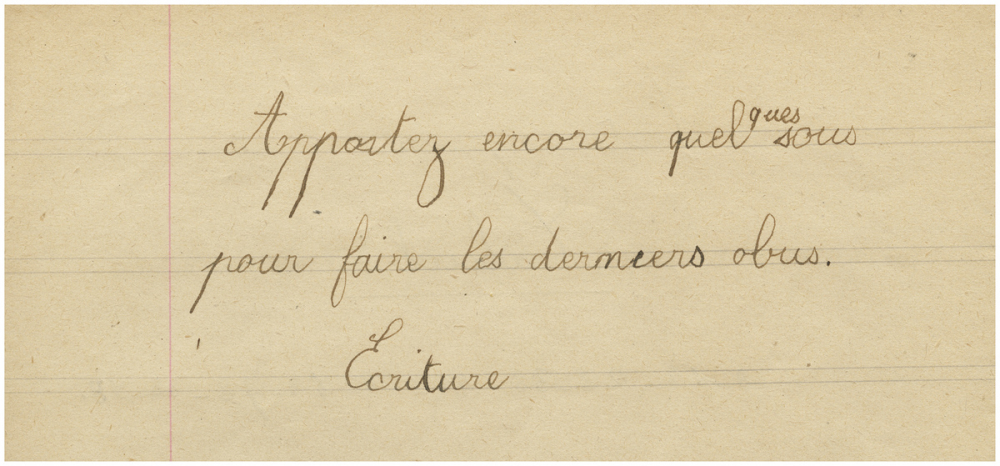 Apportez encore quelques sous
pour faire les derniers obus.
Ecriture